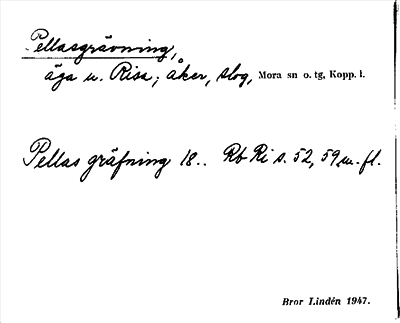 Pellasgrävning,
äga u. Risa; åker, slog, Mora sn o. tg, Kopp. l.
Pellas gräfning 18.. Rb Ri s. 52, 59 m. fl.
Bror Lindén 1947.